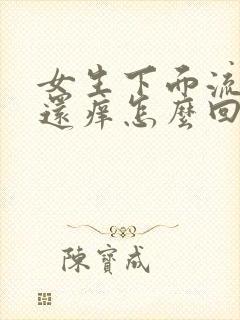 女生下而流
還痒怎麼回
陳寶成